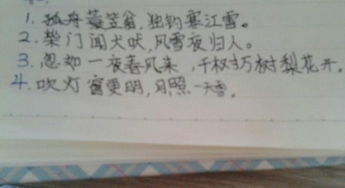 1. 孤舟蓑笠翁,独钓寒江雪。
2. 柴门闻犬吠,风雪夜归人。
3. 忽如一夜春风来,千树万树梨花开。
4. 吹灯窗更明,月照一天雪。